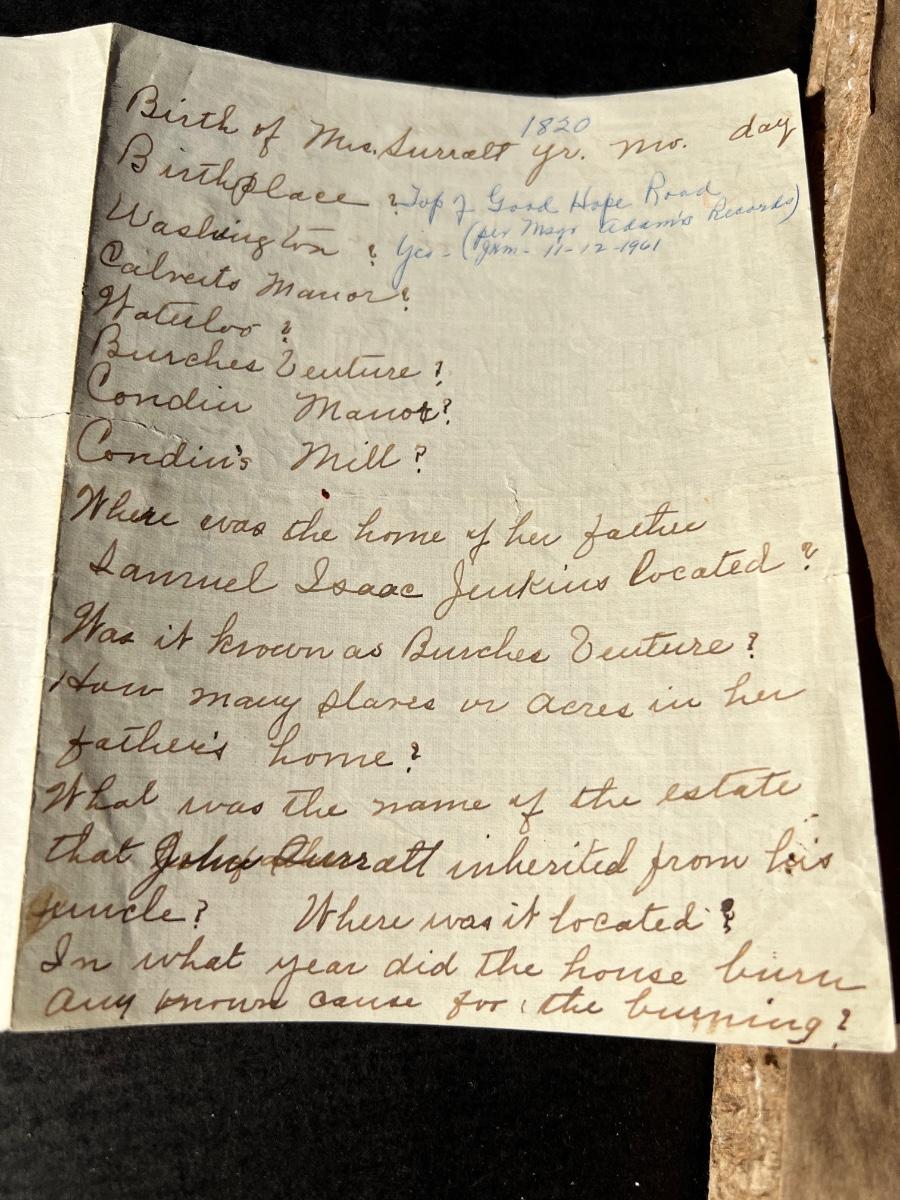 1820
Birth of Mrs. Surratt yr. mo. day
Birthplace ? Top of Good Hope Road
Washington ? Yes - (per Msgr Adam's Records)
JHM - 11-12-1961
Calverts Manor?
Waterloo ?
Burches Venture ?
Condin Manor?
Condin's Mill ?
Where was the home of her father
Samuel Isaac Jenkins located ?
Was it known as Burches Venture ?
How many slaves or acres in her
father's home ?
What was the name of the estate
that John Surratt inherited from his
uncle? Where was it located ?
In what year did the house burn
Any known cause for the burning ?